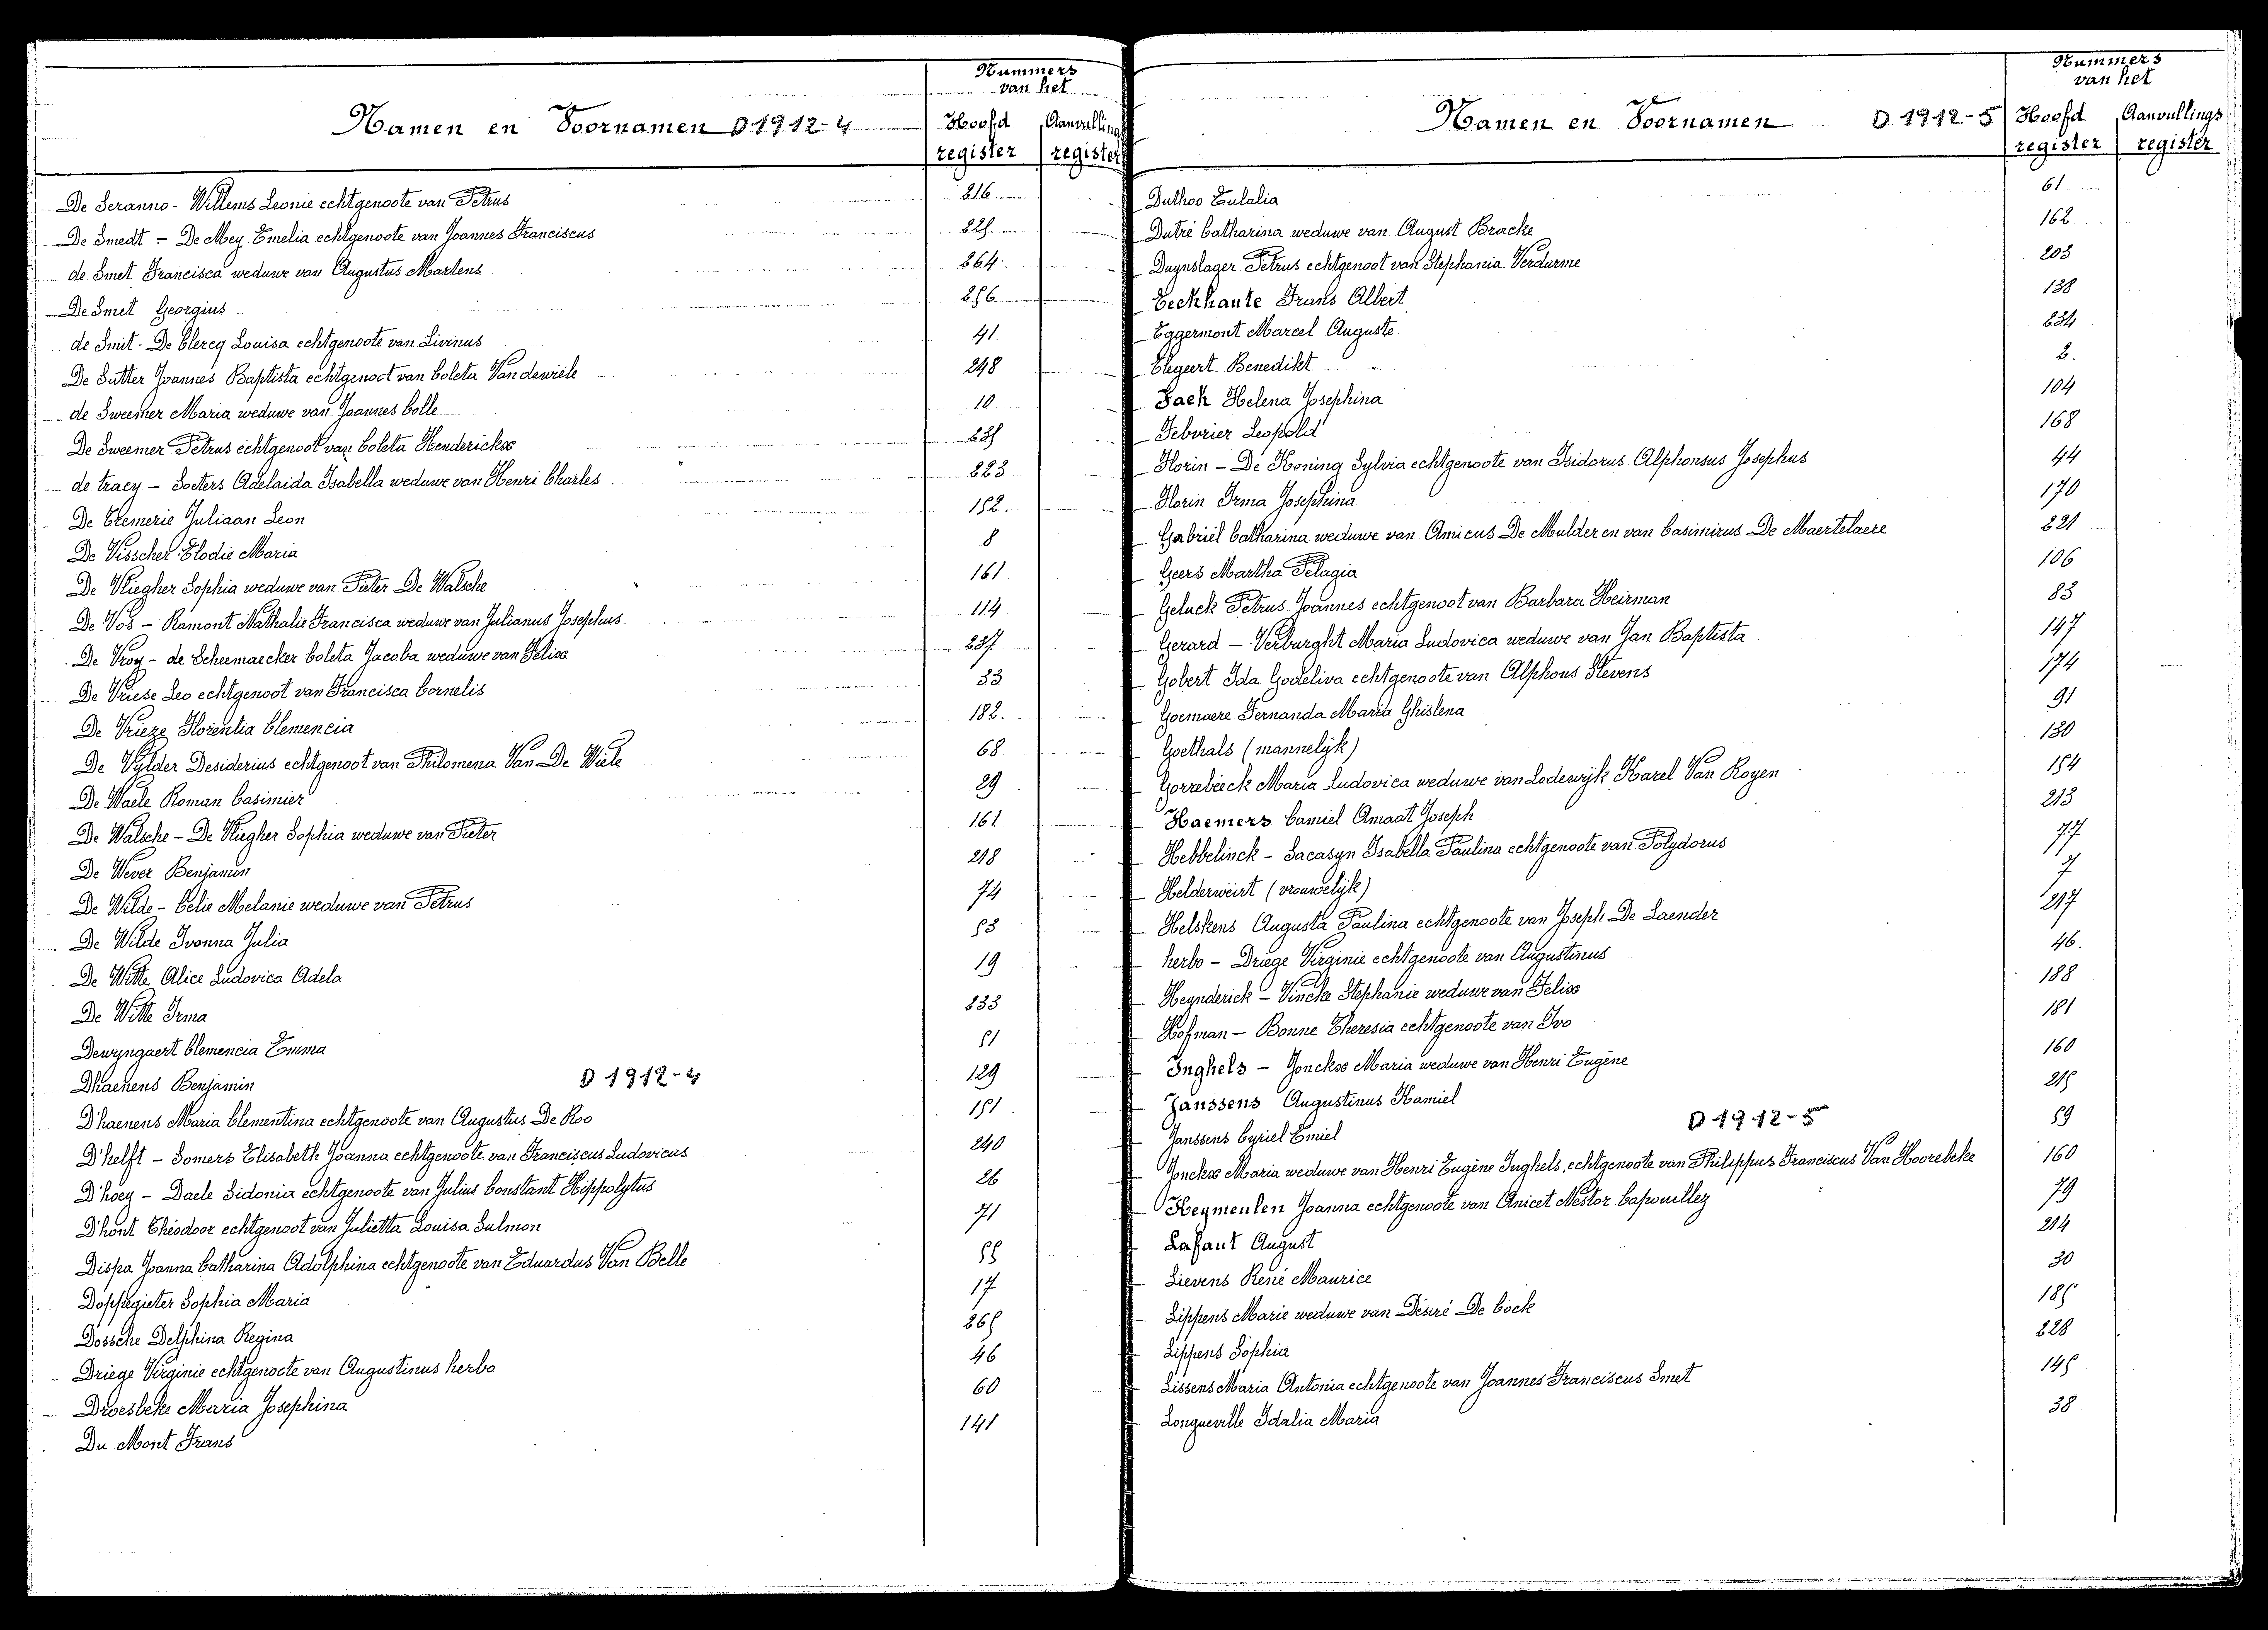 Nummers
van het
Namen en Voornamen D 1912-4 Hoofd Aanvullings
register register
De Seranno - Willems Leonie echtgenoote van Petrus 216
De Smedt - De Mey Emelia echtgenoote van Joannes Franciscus 225
de Smet Francisca weduwe van Augustus Martens 264
De Smet Georgius 256
de Smit - De Clercq Louisa echtgenoote van Livinus 41
De Sutter Joannes Baptista echtgenoot van Coleta Vandewiele 248
de Sweemer Maria weduwe van Joannes Colle 10
De Sweemer Petrus echtgenoot van Coleta Henderickx 235
de tracy - Soeters Adelaida Isabella weduwe van Henri Charles 223
De Tremerie Juliaan Leon 152
De Visscher Elodie Maria 8
De Vliegher Sophia weduwe van Pieter De Walsche 161
De Vos - Ramont Nathalie Francisca weduwe van Julianus Josephus 114
De Vroy - de Scheemaecker Coleta Jacoba weduwe van Felix 237
De Vriese Leo echtgenoot van Francisca Cornelis 33
De Vrieze Florentia Clemencia 182
De Vylder Desiderius echtgenoot van Philomena Van De Wiele 68
De Waele Roman Casimier 29
De Walsche - De Vliegher Sophia weduwe van Pieter 161
De Wever Benjamin 218
De Wilde - Celie Melanie weduwe van Petrus 74
De Wilde Ivonna Julia 53
De Witte Alice Ludovica Adela 19
De Witte Irma 233
Dewyngaert Clemencia Emma 51
Dhaenens Benjamin D 1912-4 129
D'haenens Maria Clementina echtgenoote van Augustus De Roo 151
D'helft - Somers Elisabeth Joanna echtgenoote van Franciscus Ludovicus 240
D'hoey - Daele Sidonia echtgenoote van Julius Constant Hippolytus 26
D'hont Théodoor echtgenoot van Julietta Louisa Sulmon 71
Dispa Joanna Catharina Adolphina echtgenoote van Eduardus Van Belle 55
Doppegieter Sophia Maria 17
Dossche Delphina Regina 265
Driege Virginie echtgenoote van Augustinus herbo 46
Droesbeke Maria Josephina 60
Du Mont Frans 141
Nummers
van het
Namen en Voornamen D 1912-5 Hoofd Aanvullings
register register
Duthoo Eulalia 61
Dutré Catharina weduwe van August Bracke 162
Duynslager Petrus echtgenoot van Stephania Verdurme 203
Eeckhaute Frans Albert 138
Eggermont Marcel Auguste 234
Elegeert Benedikt 2
Fack Helena Josephina 104
Feborier Leopold 168
Florin - De Koning Sylvia echtgenoote van Isidorus Alphonsus Josephus 44
Florin Irma Josephina 170
Gabriël Catharina weduwe van Amicus De Mulder en van Casimirus De Maertelaere 221
Geers Martha Pelagia 106
Geluck Petrus Joannes echtgenoot van Barbara Heirman 83
Gerard - Verburght Maria Ludovica weduwe van Jan Baptista 147
Gobert Ida Godeliva echtgenoote van Alphons Stevens 174
Goemaere Fernanda Maria Ghislena 91
Goethals (mannelijk) 130
Gorrebeeck Maria Ludovica weduwe van Lodewijk Karel Van Royen 154
Haemers Camiel Amaat Joseph 213
Hebbelinck - Sacasyn Isabella Paulina echtgenoote van Polydorus 77
Helderweirt (vrouwelijk) 7
Helskens Augusta Paulina echtgenoote van Joseph De Laender 217
herbo - Driege Virginie echtgenoote van Augustinus 46
Heynderick - Vincke Stephanie weduwe van Felix 188
Hofman - Bonne Theresia echtgenoote van Ivo 181
Inghels - Jonckx Maria weduwe van Henri Eugène 160
Janssens Augustinus Kamiel 215
Janssens Cyriel Emiel D 1912-5 59
Jonckx Maria weduwe van Henri Eugène Inghels, echtgenoote van Philippus Franciscus Van Hoorebeke 160
Keymeulen Joanna echtgenoote van Anicet Nestor Capouillez 79
Lafaut August 214
Lievens René Maurice 30
Lippens Marie weduwe van Désiré De Cock 185
Lippens Sophia 228
Lissens Maria Antonia echtgenoote van Joannes Franciscus Smet 145
Longueville Idalia Maria 38